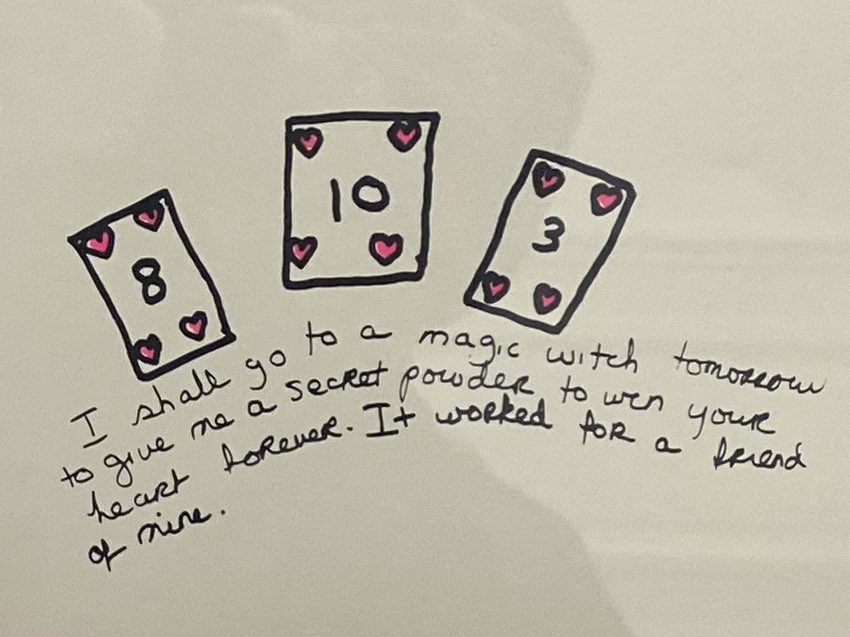 8
10
3
I shall go to a magic witch tomorrow
to give me a secret powder to win your
heart forever. It worked for a friend
of mine.